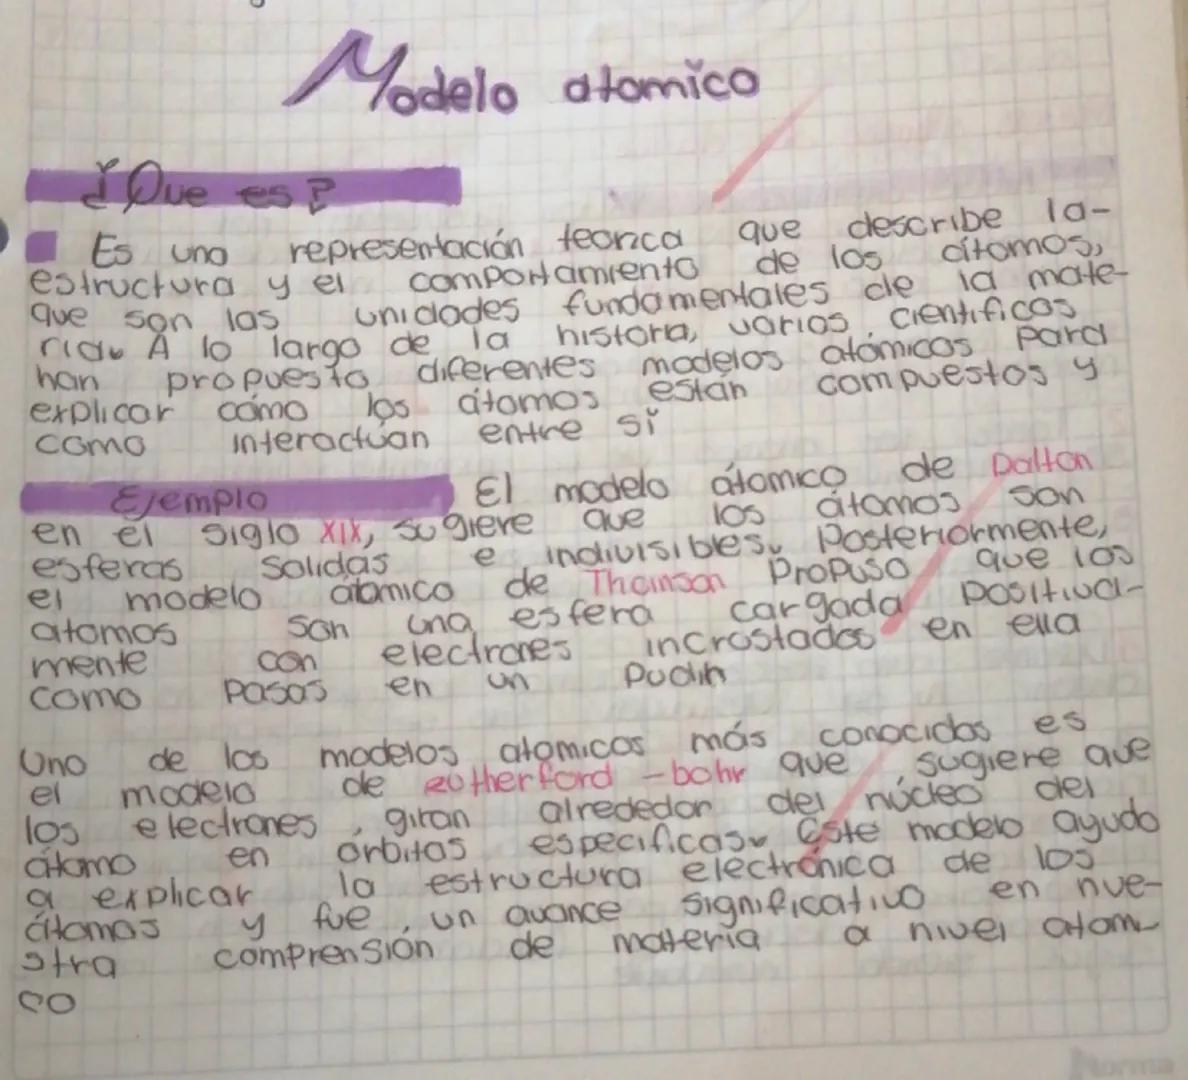 Modelo atomico
¿Que es?
Es una representación teorica que describe la-
estructura y el comportamiento de los átomos,
que son las unidades fundamentales de la mate-
ria. A lo largo de la historia, varios cientificos
han propuesto diferentes modelos atómicos para
explicar cómo los átomos están compuestos y
como interactúan entre sí
Ejemplo El modelo átomico de Dalton
en el siglo XIX, sugiere que los átomos son
esferas solidas e indivisibles. Posteriormente,
el modelo atomico de Thomson Propuso que los
atomos son una esfera cargada positiva-
mente con electrones incrostados en ella
como pasas en un Pudin
Uno de los modelos atomicos más conocidos es
el modelo de Rutherford - bohr que sugiere que
los electrones giran alrededor del núcleo del
átomo en órbitas especificas. Este modelo ayudo
a explicar la estructura electrónica de los
átomos y fue un avance significativo en nue-
stra comprensión de materia a nivel atom
co
Norma